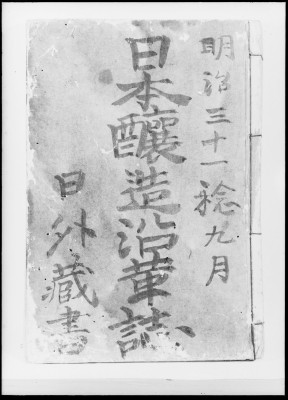 明治三十一稔九月
日本釀造沿革誌
日外藏書